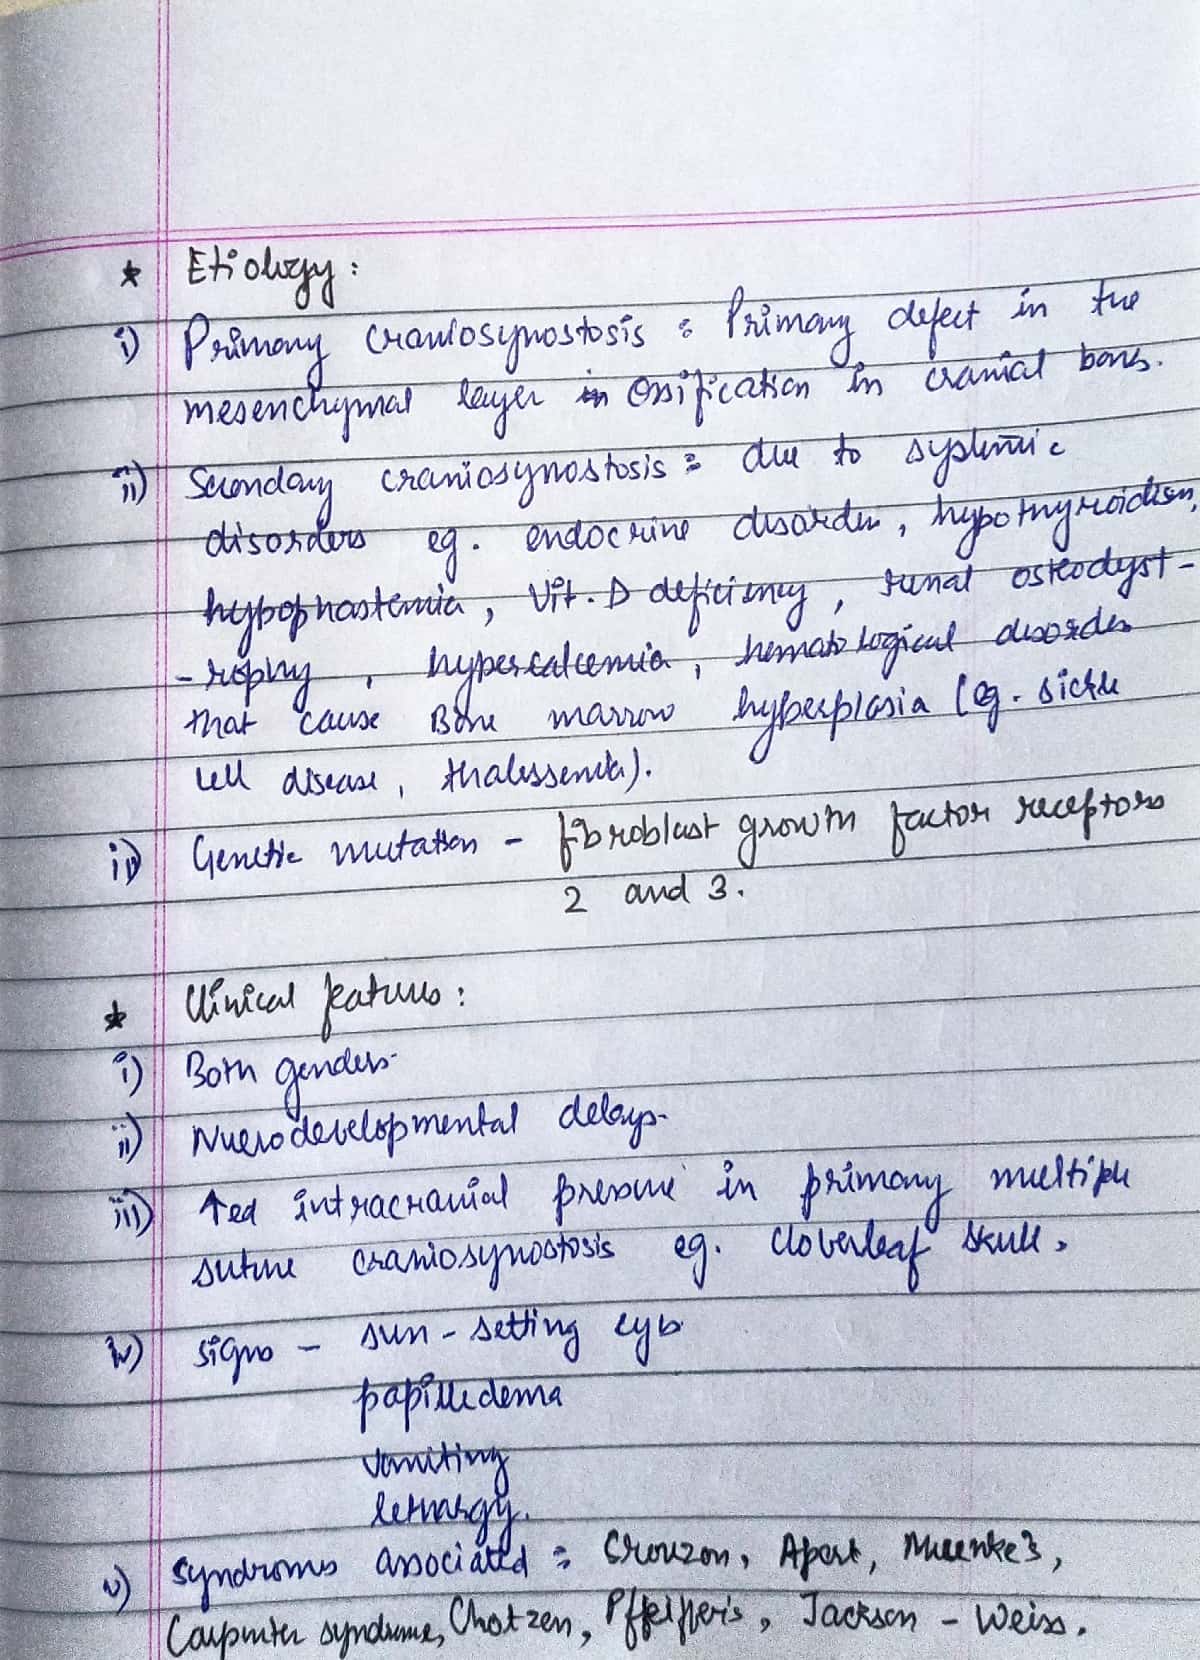 ★ Etiology :
i) Primary craniosynostosis : Primary defect in the
mesenchymal layer in ossification in cranial bones.
ii) Secondary craniosynostosis : due to systemic
disorders eg. endocrine disorder, hypothyroidism,
hypophastemia, Vit. D deficiency, renal osteodyst-
-rophy, hypercalcemia, hematological disorder
that cause Bone marrow hyperplasia (eg. sickle
cell disease, thalessemia).
iii) Genetic mutation - fibroblast growth factor receptors
2 and 3.
★ Clinical features :
i) Both genders.
ii) Nuerodevelopmental delays.
iii) ↑ed intracranial pressure in primary multiple
suture craniosynostosis eg. cloverleaf skull.
iv) signs - sun-setting eyes
papilledema
vomiting
lethargy.
v) syndromes associated : Crouzon, Apert, Muenke's,
Carpenter syndrome, Chotzen, Pfeiffer's, Jackson-Weiss.